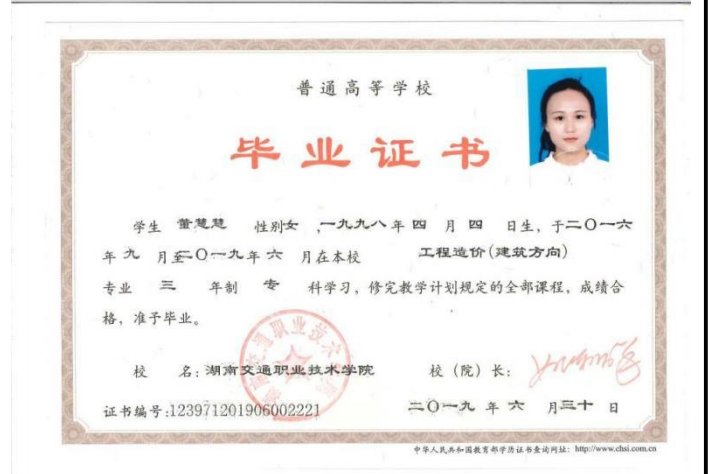 普通高等学校
毕业证书
学生 董慧慧 性别女 ,一九九八年 四 月 四 日生，于二〇一六
年 九 月至二〇一九年 六 月在本校 工程造价(建筑方向)
专业 三 年制 专 科学习，修完教学计划规定的全部课程，成绩合
格，准予毕业。
校 名：湖南交通职业技术学院 校（院）长：
证书编号:123971201906002221 二〇一九 年 六 月三十 日
中华人民共和国教育部学历证书查询网址：http://www.chsi.com.cn